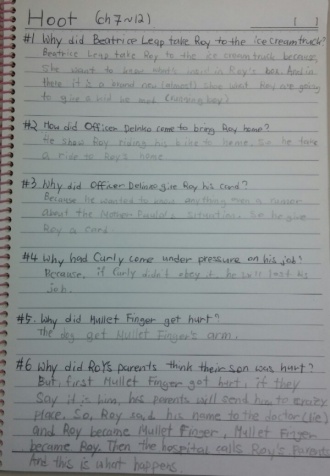 Hoot (ch 7~12)
#1 Why did Beatrice Leap take Roy to the ice cream truck?
Beatrice Leap take Roy to the ice cream truck because,
She want to know what's in Roy's box. And in
there it is a brand new shoe what Roy are going
to give a kid be mad (running boy)
#2 How did Officer Delinko come to bring Roy home?
He show Roy riding his bike to home. So he take
a ride to Roy's home
#3 Why did Officer Delinko give Roy his card?
Because he wanted to know anything then a rumor
about the situation. So he give
Roy a card
#4 Why had Curly come under pressure on his job?
Because, if Curly didn't obey it he will lost his
job.
#5. Why did Mullet Finger get hurt?
The dog get Mullet Finger's arm.
#6 Why did Roy's parents think their son was hurt?
But, first Mullet Finger got hurt, if they
Say it is him, his parents will send him to
place. So, Roy said his name to the doctor (lie)
and Roy became Mullet Finger, Mullet Finger
became Roy. Then the hospital calls Roy's Parents
And this is what happens.